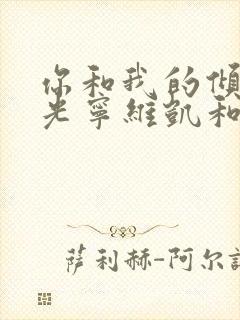 你和我的傾
光寧維凱和
萨利赫-阿尔